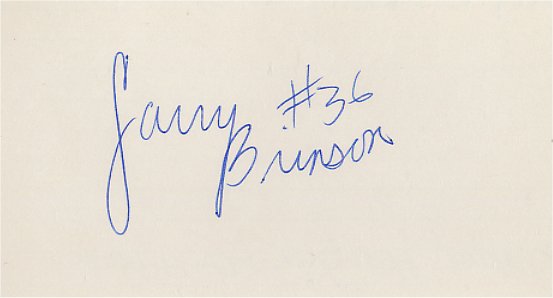 Larry #36
Brinson